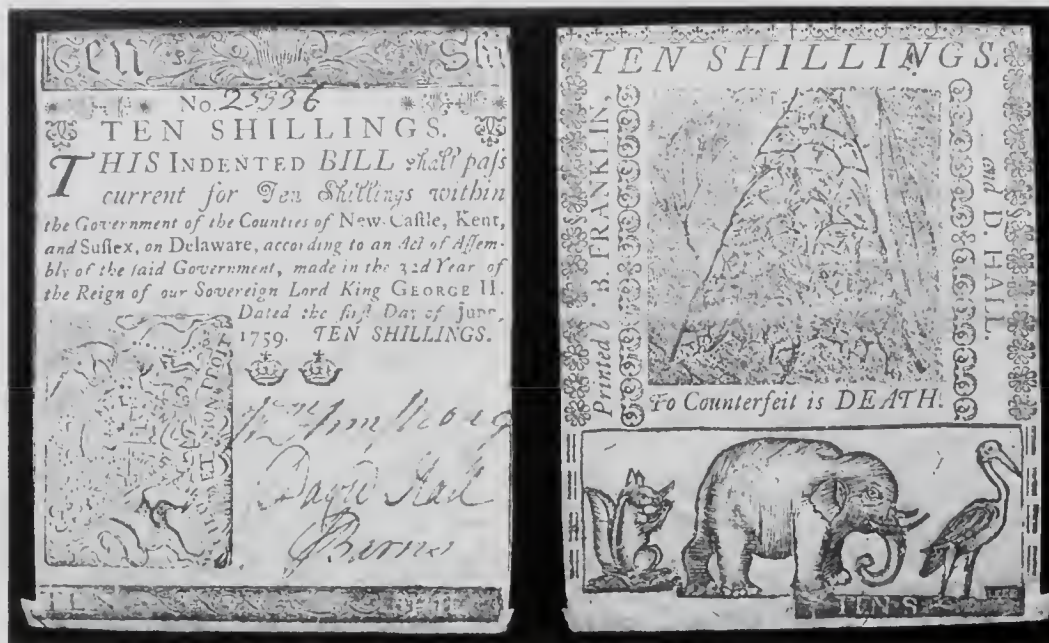 Ten Shi
No. 25536
TEN SHILLINGS.
THIS INDENTED BILL ſhall paſs
current for Ten Shillings within
the Government of the Counties of New-Caſtle, Kent,
and Suſſex, on Delaware, according to an Act of Aſſem-
bly of the ſaid Government, made in the 32d Year of
the Reign of our Sovereign Lord King GEORGE II.
Dated the firſt Day of June,
1759. TEN SHILLINGS.
ET MON DROIT
David Hall
TEN SHILLINGS.
Printed by B. FRANKLIN,
and D. HALL.
To Counterfeit is DEATH.
TEN S